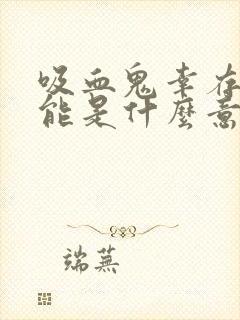 吸血鬼幸存
能是什麼意
端蕪